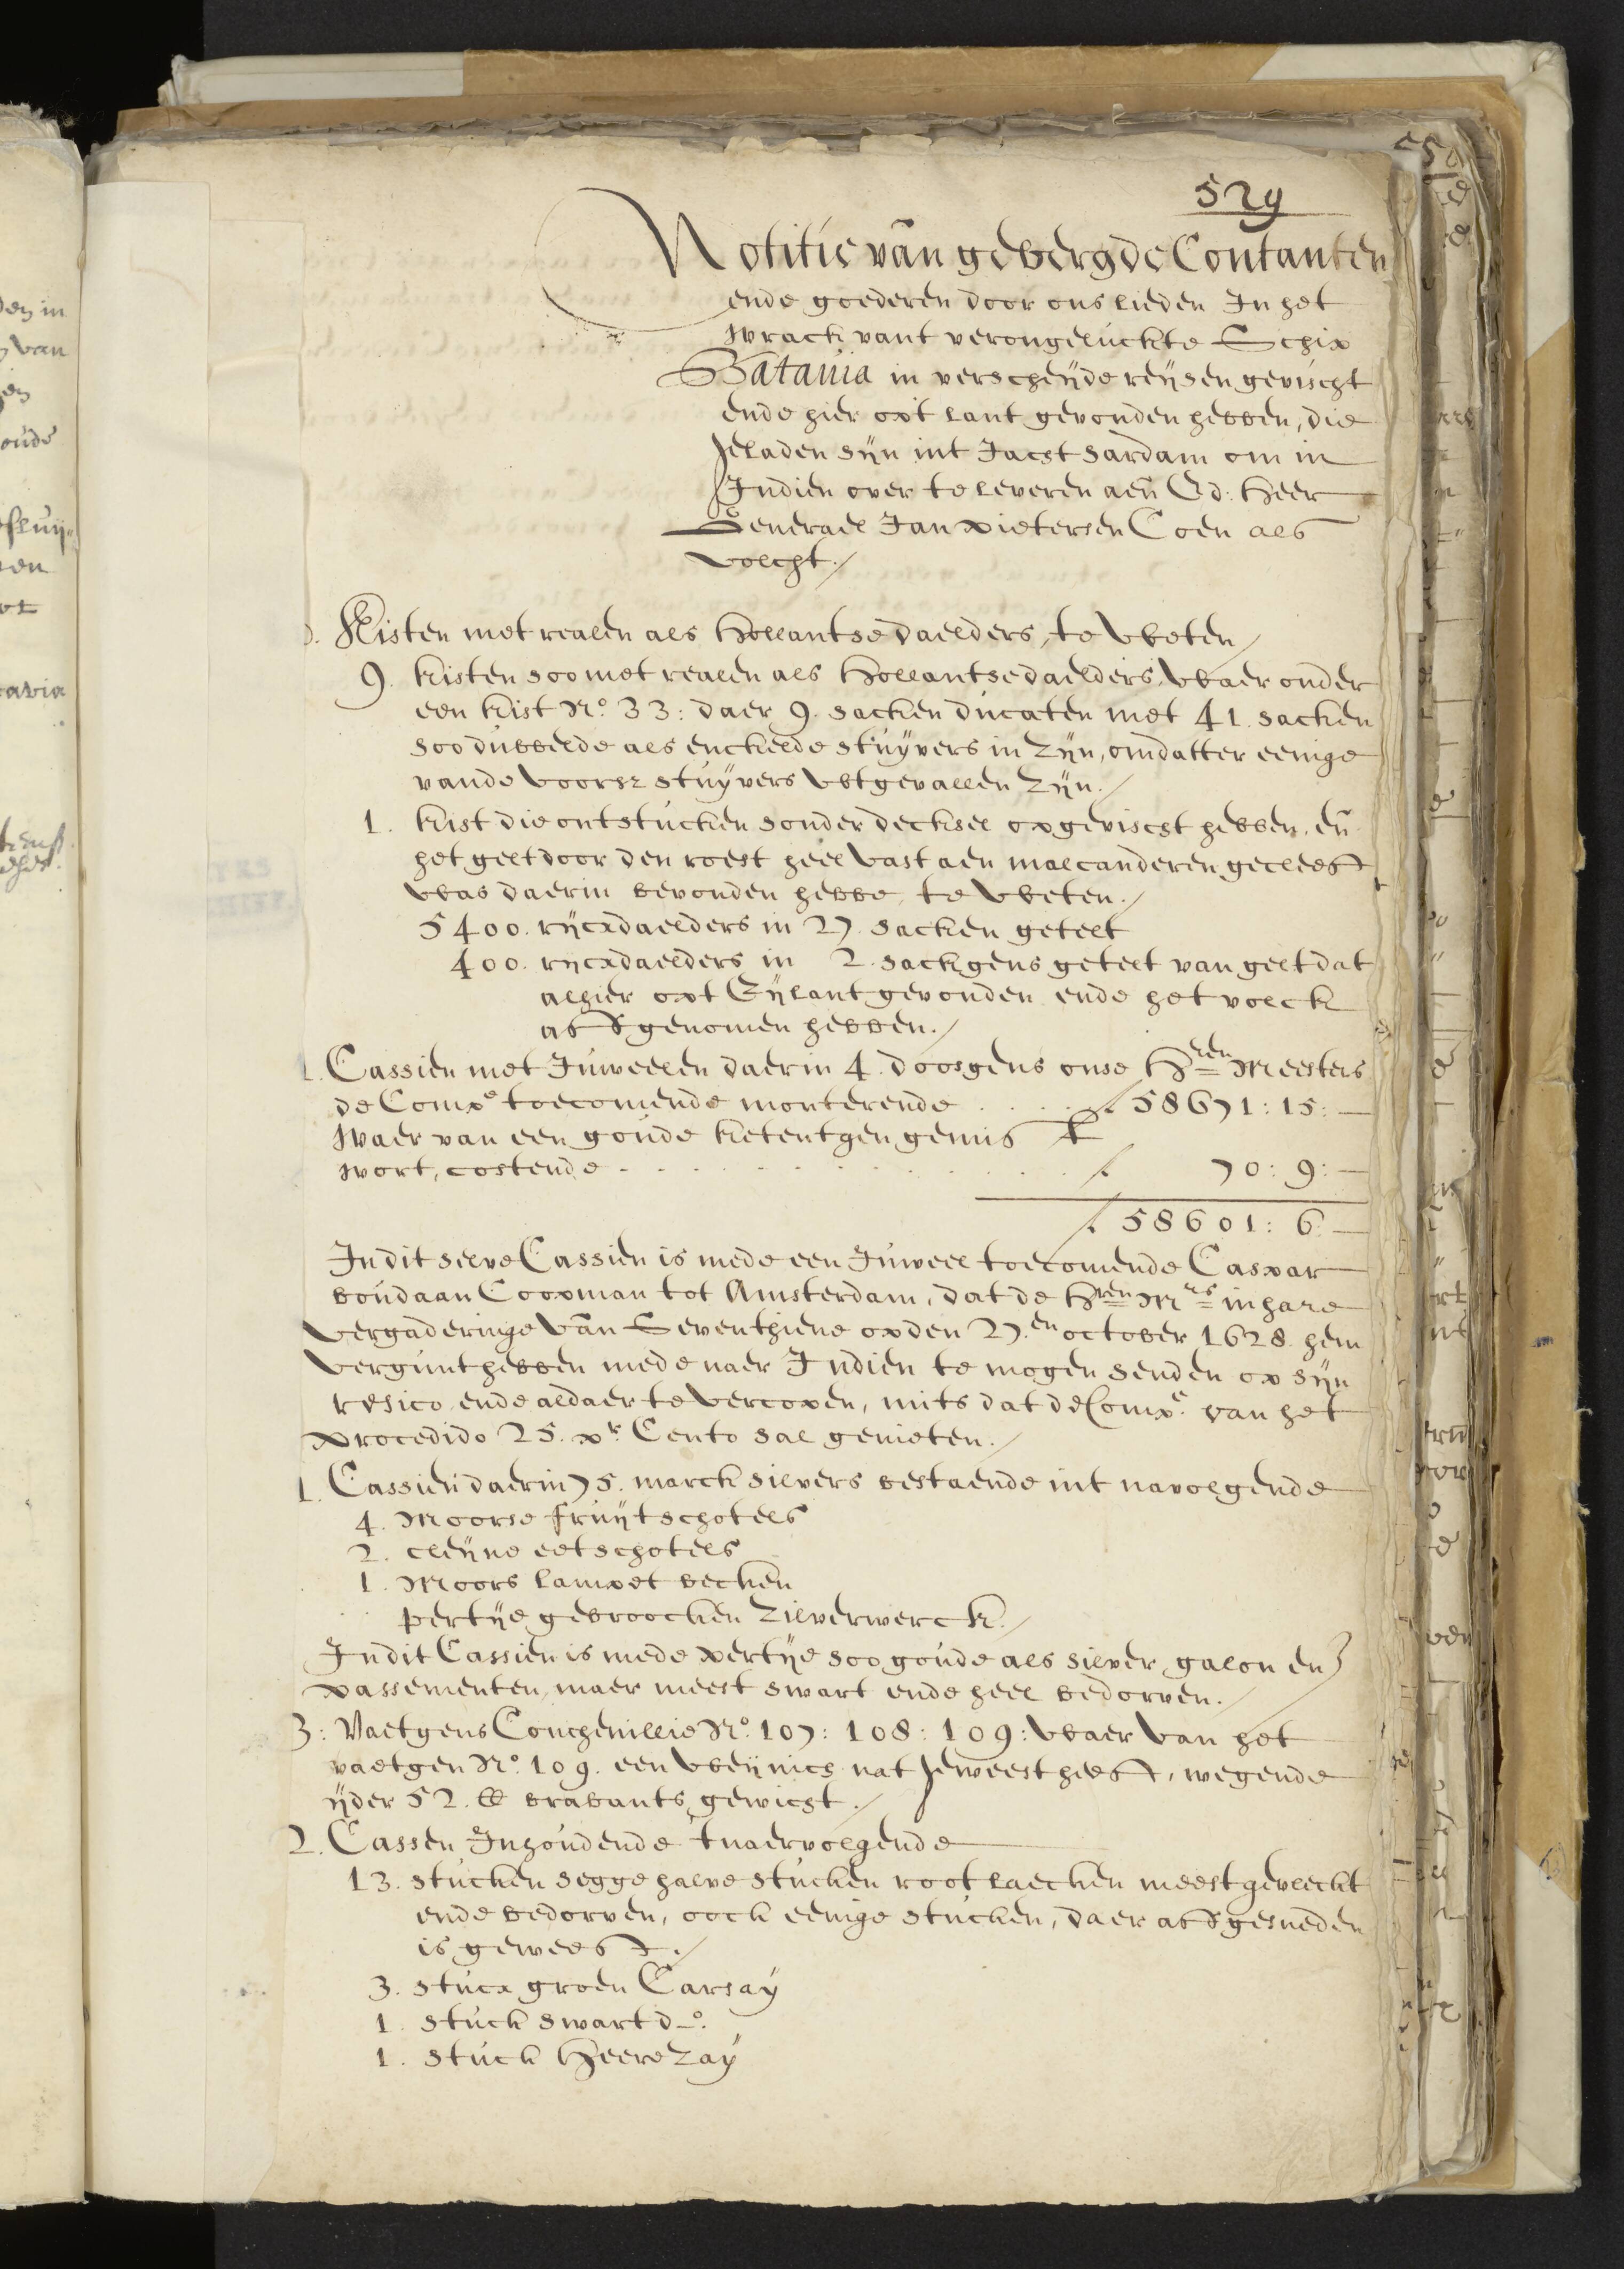 529
Notitie van gebergde Contanten
ende goederen door ons lieden In het
wrack vant verongeluckte Schip
Batavia in verscheijde reijsen gevischt
ende hier opt lant gevonden hebben, die
geladen sijn int Jacht Sardam om in
Indien over te leveren aen Ed: Heer
Generael Jan Pietersen Coen als
volcht./
Kisten met realen als Hollantse daelders, te weten/
9. kisten soo met realen als Hollantse daelders, waer onder
een kist No. 33: daer 9. sacken ducaten met 41. sacken
soo dubbelde als enckelde stuijvers in zijn, omdatter eenige
vande voorsz stuijvers ubtgevallen zijn./
1. kist die ontstucken sonder decksel opgevischt hebben, en
het gelt door den roest heel vast aen malcanderen gecleeft
was daerin bevonden hebbe, te weten./
5400. rijcxdaelders in 27. sacken getelt
400. rijcxdaelders in 2. sackgens getelt van gelt dat
alhier opt Eijlant gevonden ende het volck
aff genomen hebben./
1. Cassien met Juweelen daerin 4. doosgens onse Hren Meesters
de Compe toecomende monterende . . . . ƒ. 58671: 15: —
waer van een goude ketentgen gemist
wort, costende . . . . . . . . ƒ. 70: 9: —
ƒ. 58601: 6 —
In dit selve Cassien is mede een Juweel toecomende Caspar
boudaan Coopman tot Amsterdam, dat de Hren Mrs in hare
vergaderinge van Seventhiene op den 27.en october 1628. hem
vergunt hebben mede naer Indien te mogen senden op sijn
resico ende aldaer te vercopen, mits dat de Compe. van het
procedido 25. pr. Cento sal genieten./
1. Cassien daerin 75. marck silvers bestaende int navolgende
4. Moorse fruijtschotels
2. cleijne eetschotels
1. Moors lampet becken
pertije gebroocken zilverwerck./
In dit Cassien is mede pertije soo goude als silver galon en
passementen, maer meest swart ende heel bedorven./
3: Vaetgens Conchenillie No. 107: 108: 109: waer van het
vaetgen No. 109. een weijnich nat geweest heeft, wegende
ijder 52. lb brabants gewicht./
2. Cassen Inhoudende tnaervolgende
13. stucken segge halve stucken root laecken meest gevleckt
ende bedorven, oock eenige stucken, daer aff gesneden
is geweest./
3. stucx groen Carsay
1. stuck swart do.
1. stuck Heere zay